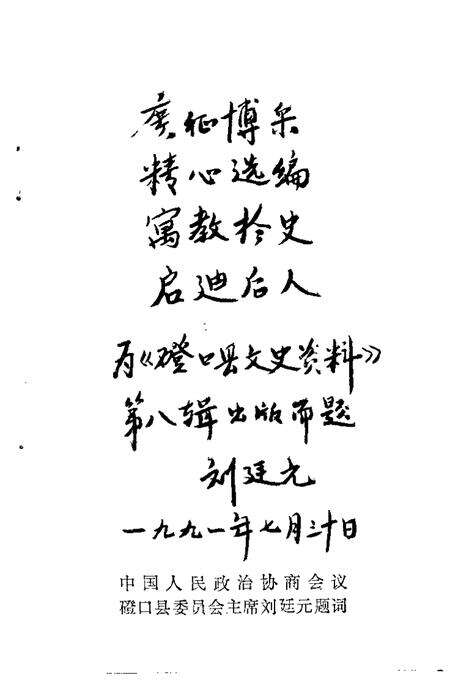 广征博采
精心选编
寓教於史
启迪后人
为《磴口县文史资料》
第八辑出版而题
刘廷元
一九九一年七月三十日
中国人民政治协商会议
磴口县委员会主席刘廷元题词